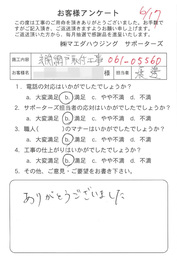 お客様アンケート
6/17
この度は工事のご用命を頂きありがとうございました。お手数で
すがご記入頂き、ご返送頂きますようお願い申し上げます。
ご返送頂いた方から、毎月抽選で感謝の品を進呈いたします。
㈱マエダハウジング サポーターズ
施工内容
取付工事
061-05560
お客様名
様
担当者
1．電話の対応はいかがでしたでしょうか？
a. 大変満足 b. 満足 c. やや不満 d. 不満
2．サポーターズ担当者の応対はいかがでしたでしょうか？
a. 大変満足 b. 満足 c. やや不満 d. 不満
3．職人（ ）のマナーはいかがでしたでしょうか？
a. 大変満足 b. 満足 c. やや不満 d. 不満
4．工事の仕上がりはいかがでしたでしょうか？
a. 大変満足 b. 満足 c. やや不満 d. 不満
5．その他、ご意見・ご要望をお書き下さい。
ありがとうございました